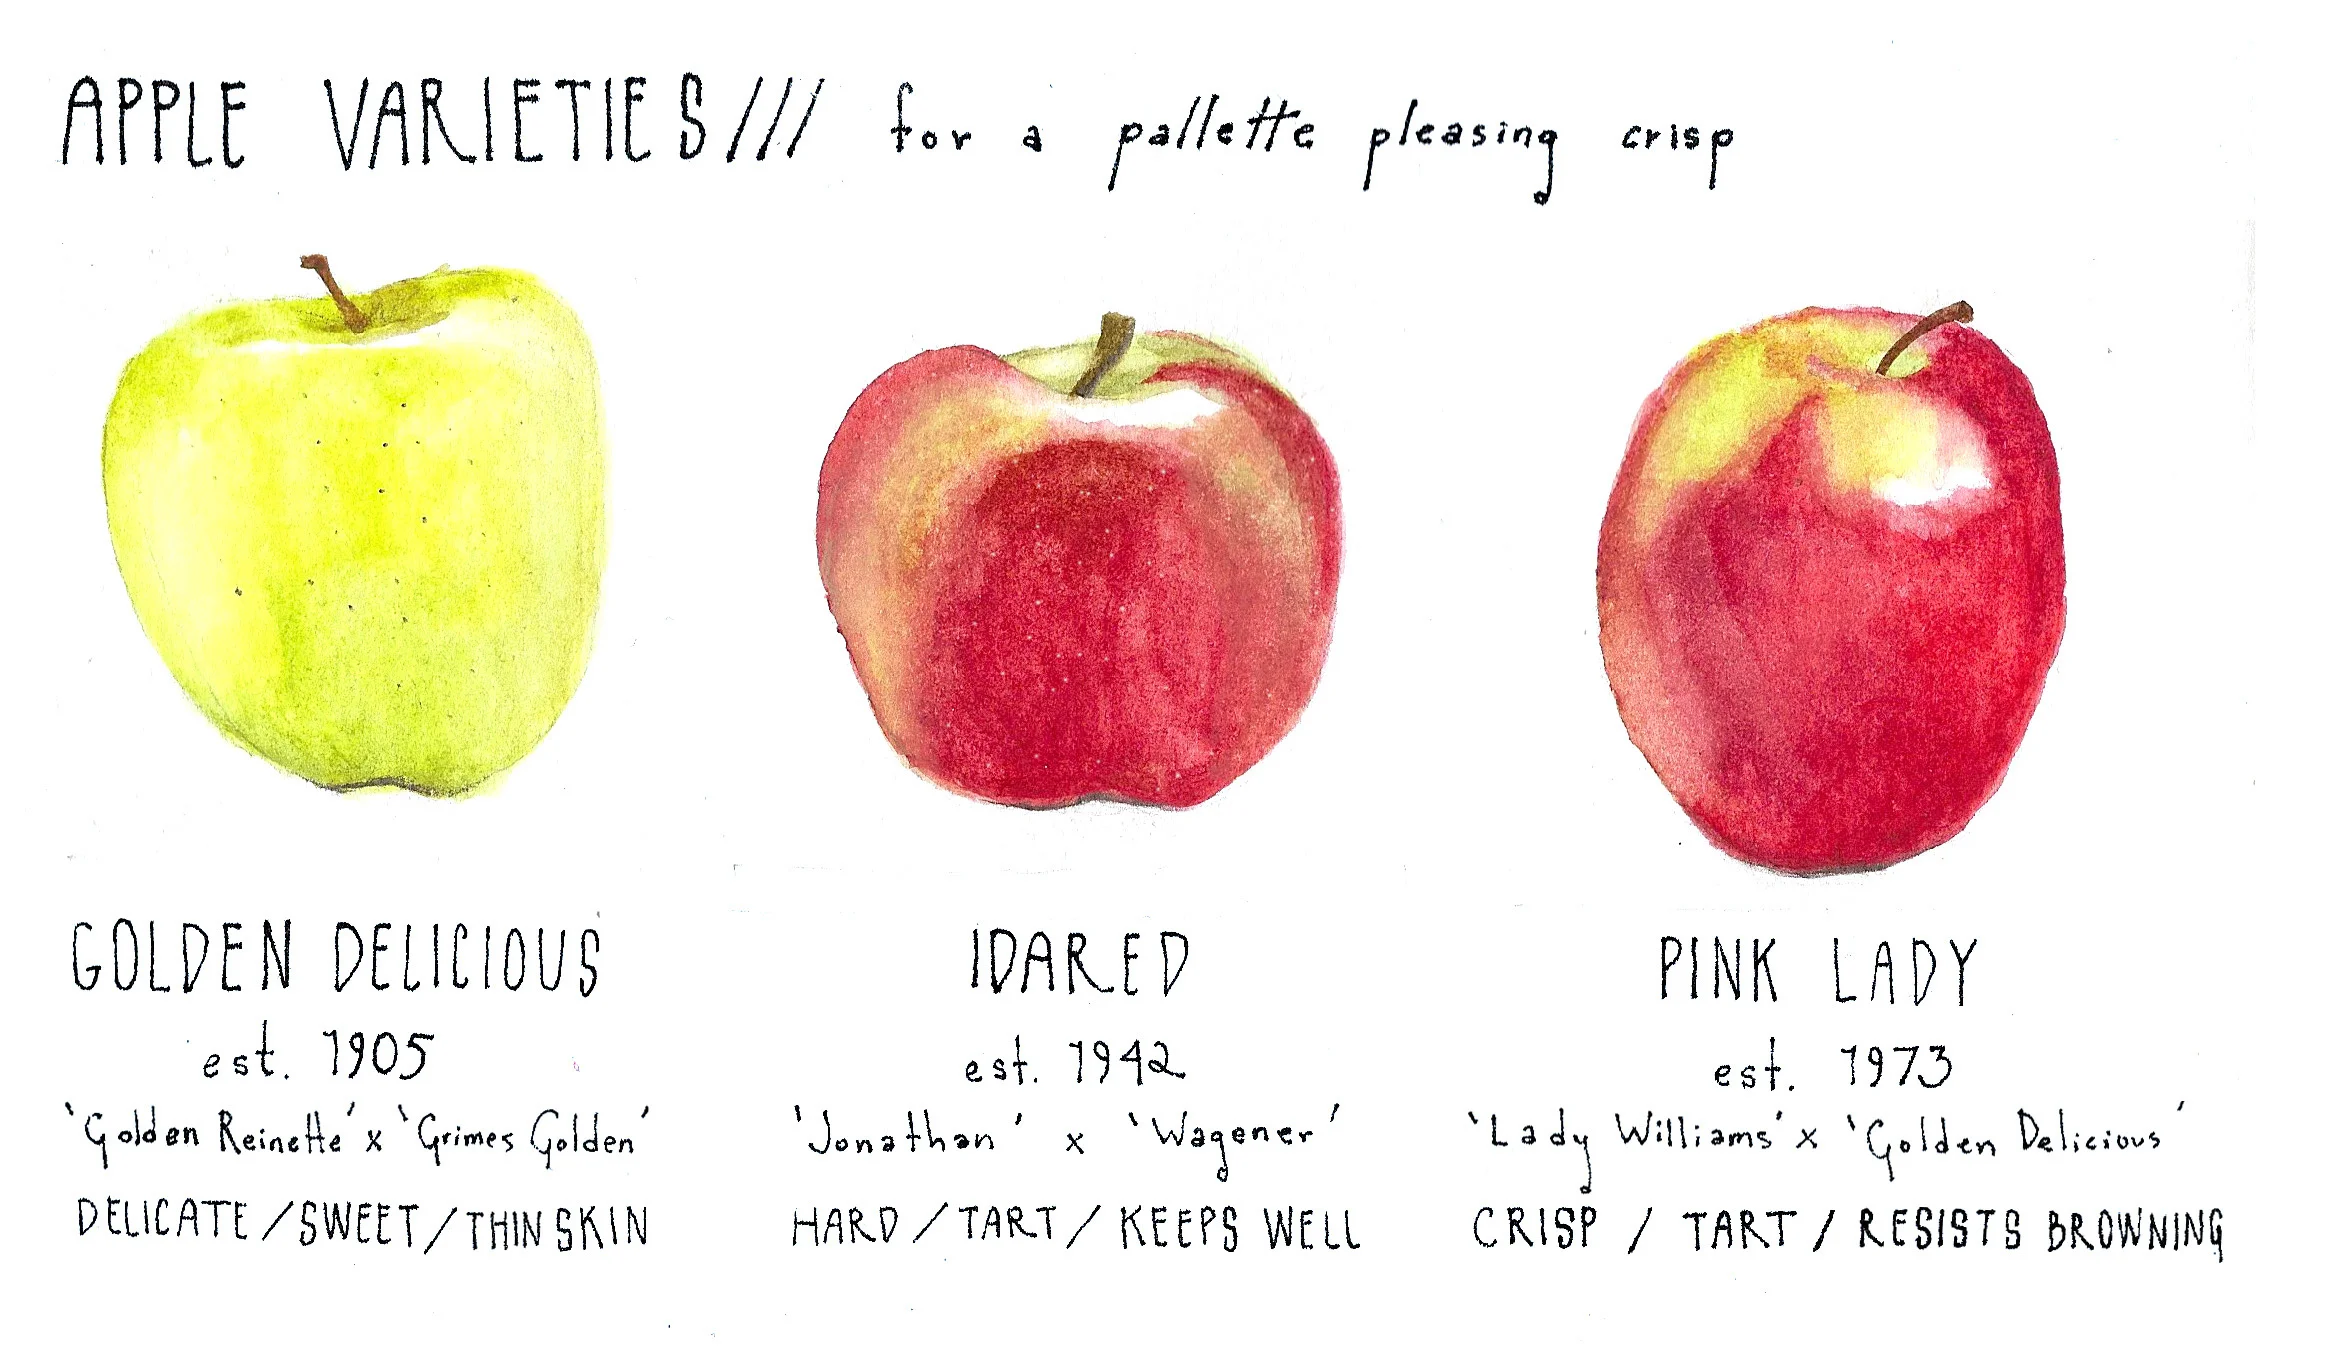 APPLE VARIETIES/// for a pallette pleasing crisp
GOLDEN DELICIOUS
est. 1905
'Golden Reinette' x 'Grimes Golden'
DELICATE / SWEET / THIN SKIN
IDARED
est. 1942
'Jonathan' x 'Wagener'
HARD / TART / KEEPS WELL
PINK LADY
est. 1973
'Lady Williams' x 'Golden Delicious'
CRISP / TART / RESISTS BROWNING